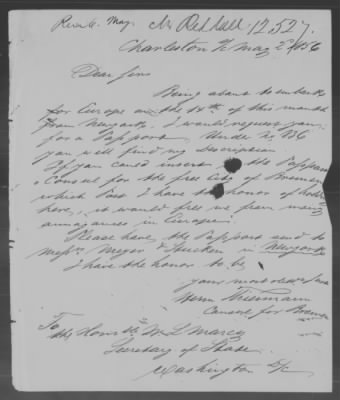 Mr Red hall. 12,527.
Charleston May 2 1856
Dear Sir
Being about to embark
for Europe on the 14th of this month
from Newyork. I would request you
for a Passport. Under No 836
you will find my description
If you could insert the Passport
Consul for the free City of Bremen
which Post I have the honor of
here, it would free me from many
annoyances in Europe.
Please have the Passport send to
Messrs Meyer & in Newyork
I have the honor to be
your most
Consul for Bremen
To
the Honble W L Marcy
Secretary of State
Washington D/C